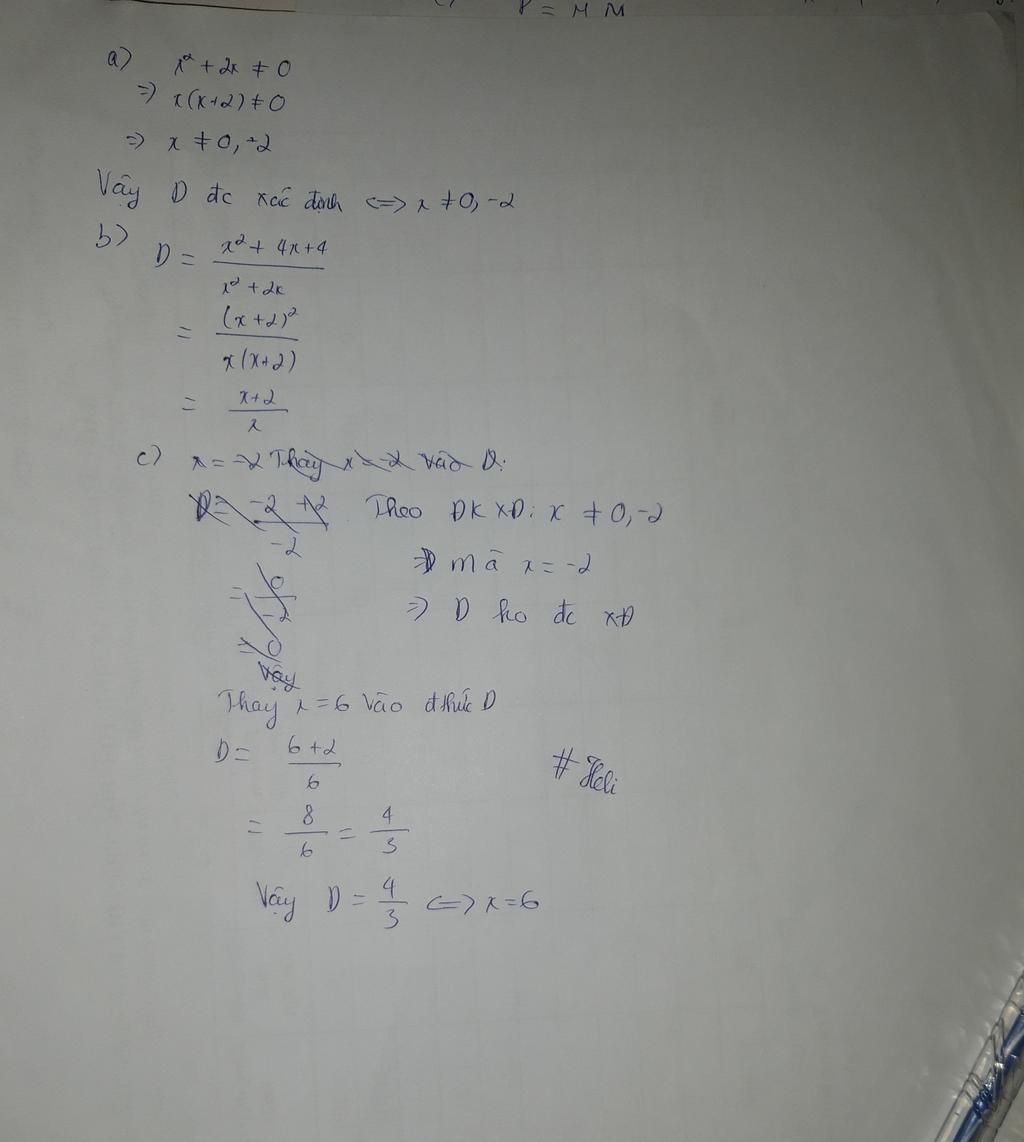 P = M M
a) x² + 2x ≠ 0
=> x(x+2) ≠ 0
=> x ≠ 0, -2
Vậy D đc xác định <=> x ≠ 0, -2
b) D = \frac{x² + 4x + 4}{x² + 2x}
= \frac{(x+2)²}{x(x+2)}
= \frac{x+2}{x}
c) x = -2 Thay x = -2 vào D:
D = \frac{-2 + 2}{-2} Theo ĐKXĐ: x ≠ 0, -2
= \frac{0}{-2} mà x = -2
= 0 => D ko đc XĐ
Vậy
Thay x = 6 vào đthức D
D = \frac{6+2}{6}
# Heli
= \frac{8}{6} = \frac{4}{3}
Vậy D = \frac{4}{3} <=> x = 6